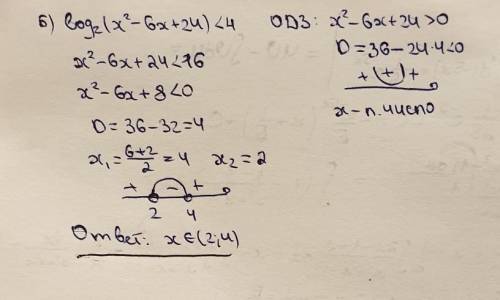 б) log₂(x²-6x+24)<4
x²-6x+24<16
x²-6x+8<0
D=36-32=4
x₁=(6+2)/2=4 x₂=2
+ - +
2 4
Ответ: x∈(2;4)
ОДЗ: x²-6x+24>0
D=36-24·4<0
+ + +
x-л.число